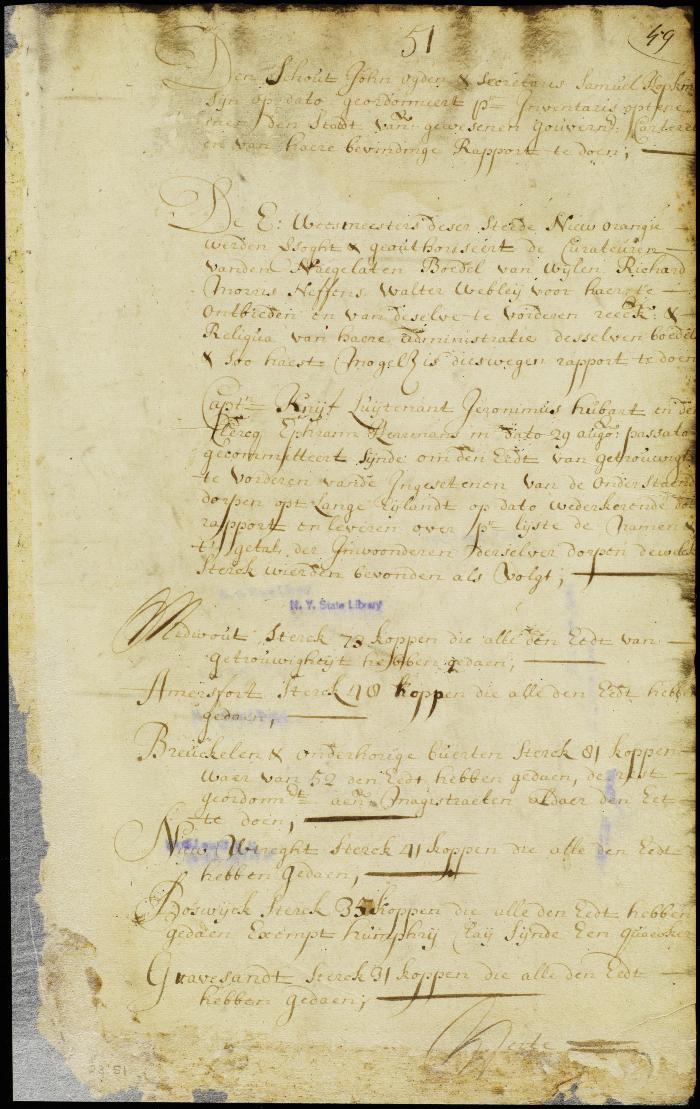 51
49
Den Schout John ogden & secretaris Samuel Hopkin
syn op dato geordonneert pr Inventaris opte ne
men den Stadt van gewesenen gouvernr Carteret
en van haere bevindinge Rapport te doen;
De E: Weesmeesters deser Steede Nieu orangie
werden versoght & geauthoriseert de Curateuren
vanden Naegelaten Boedel van Wylen Richard
Morris Neffens Walter Webley voor haer te
ontbieden en van deselve te vorderen reeck: &
Reliqua van haere administratie desselven boedel
& soo haest Mogel is dieswegen rapport te doen
Captn Knijf Luytenant Jeronimus hubart en de
Clercq Ephraim Hermans in dato 29 augo: passato
gecommitteert synde om den Eedt van getrouwigh
te vorderen vande Ingesetenen van de onderstaende
dorpen opt Lange Eylandt op dato wederkerende doe
rapport en leveren over pr lyste de Namen &
t' getal der Inwoonderen derselver dorpen dewelck
Sterck wierden bevonden als volgt;
N. Y. State Library
Midwout Sterck 73 koppen die alle den Eedt van
getrouwigheyt hebben gedaen;
Amersfort Sterck 48 koppen die alle den Eedt hebbe
gedaen;
Breuckelen & onderhorige buerten Sterck 81 koppen
waer van 52 den Eedt hebben gedaen, de rest
geordonnt aen Magistraeten aldaer den Eet
te doen;
Nieu Utreght Sterck 41 koppen die alle den Eedt
hebben gedaen;
Boswyck Sterck 35 koppen die alle den Eedt hebben
gedaen Exempt humphry Clay synde Een quaeker
Gravesandt Sterck 31 koppen die alle den Eedt
hebben gedaen;
23:51